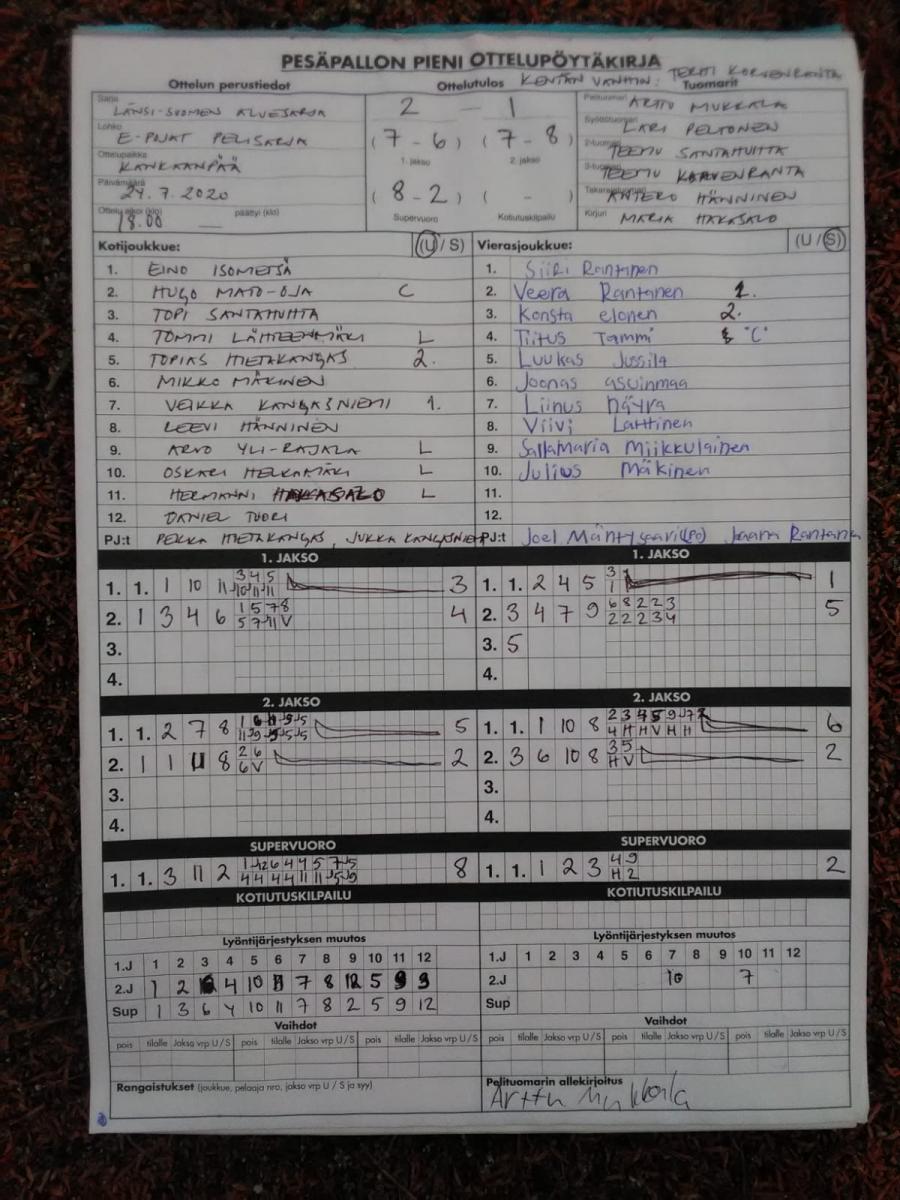 PESÄPALLON PIENI OTTELUPÖYTÄKIRJA
Ottelun perustiedot Ottelutulos KENTÄN VANHIN: TERHI KORVENRANTA Tuomarit
Sarja LÄNSI-SUOMEN ALUESARJA
Lohko E-POJAT PELISARJA
Ottelupaikka KANKAANPÄÄ
Päivämäärä 24.7.2020
Ottelu alkoi (klo) 18.00 päättyi (klo)
2 - 1
(7-6) (7-8)
1. jakso 2. jakso
(8-2) ( - )
Supervuoro Kotiutuskilpailu
Pelituomari ARTTU MUKKALA
Syöttötuomari LARI PELTONEN
2-tuomari TEEMU SANTAHUHTA
3-tuomari TEEMU KORVENRANTA
Takarajatuomari ANTERO HÄNNINEN
Kirjuri MARIA HAKASALO
Kotijoukkue: (U / S)
1. EINO ISOMETSÄ
2. HUGO MATO-OJA C
3. TOPI SANTAHUHTA
4. TOMMI LÄHTEENMÄKI L
5. TOPIAS HIETAKANGAS 2.
6. MIKKO MÄKINEN
7. VEIKKA KANGASNIEMI 1.
8. LEEVI HÄNNINEN
9. ARVO YLI-RAJALA L
10. OSKARI HELKAMÄKI L
11. HERMANNI HAKASALO L
12. DANIEL TUORI
PJ:t PEKKA HIETAKANGAS, JUKKA KANGASNIEMI
Vierasjoukkue: (U / S)
1. Siiri Rantanen
2. Veera Rantanen 1.
3. Konsta elonen 2.
4. Tiitus Tammi "C"
5. Luukas Jussila
6. Joonas asuinmaa
7. Liinus näyrä
8. Viivi Lahtinen
9. SallaMaria Miikkulainen
10. Julius Mäkinen
11.
12.
PJ:t Joel Mäntysaari (PO) Jaana Rantanen
1. JAKSO 1. JAKSO
1. 1. 1 10 11 3 4 5 3
10 11 11
2. 1 3 4 6 1 5 7 8 4
5 7 11 V
3.
4.
1. 1. 2 4 5 3 1
1
2. 3 4 7 9 6 8 2 2 3 5
2 2 2 3 4
3. 5
4.
2. JAKSO 2. JAKSO
1. 1. 2 7 8 5
2. 1 1 11 8 2 6 2
6 V
3.
4.
1. 1. 1 10 8 6
4 H H V H H
2. 3 6 10 8 3 5 2
H V
3.
4.
SUPERVUORO SUPERVUORO
1. 1. 3 11 2 8
1. 1. 1 2 3 4 9 2
H 2
KOTIUTUSKILPAILU KOTIUTUSKILPAILU
Lyöntijärjestyksen muutos Lyöntijärjestyksen muutos
1.J 1 2 3 4 5 6 7 8 9 10 11 12
2.J 1 2 4 10 11 7 8 12 5 9 3
Sup 1 3 6 4 10 11 7 8 2 5 9 12
1.J 1 2 3 4 5 6 7 8 9 10 11 12
2.J 10 7
Sup
Vaihdot Vaihdot
pois tilalle Jakso vrp U / S pois tilalle Jakso vrp U / S pois tilalle Jakso vrp U / S
pois tilalle Jakso vrp U / S pois tilalle Jakso vrp U / S pois tilalle Jakso vrp U / S
Rangaistukset (joukkue, pelaaja nro, jakso vrp U / S ja syy)
Pelituomarin allekirjoitus
Arttu Mukkala